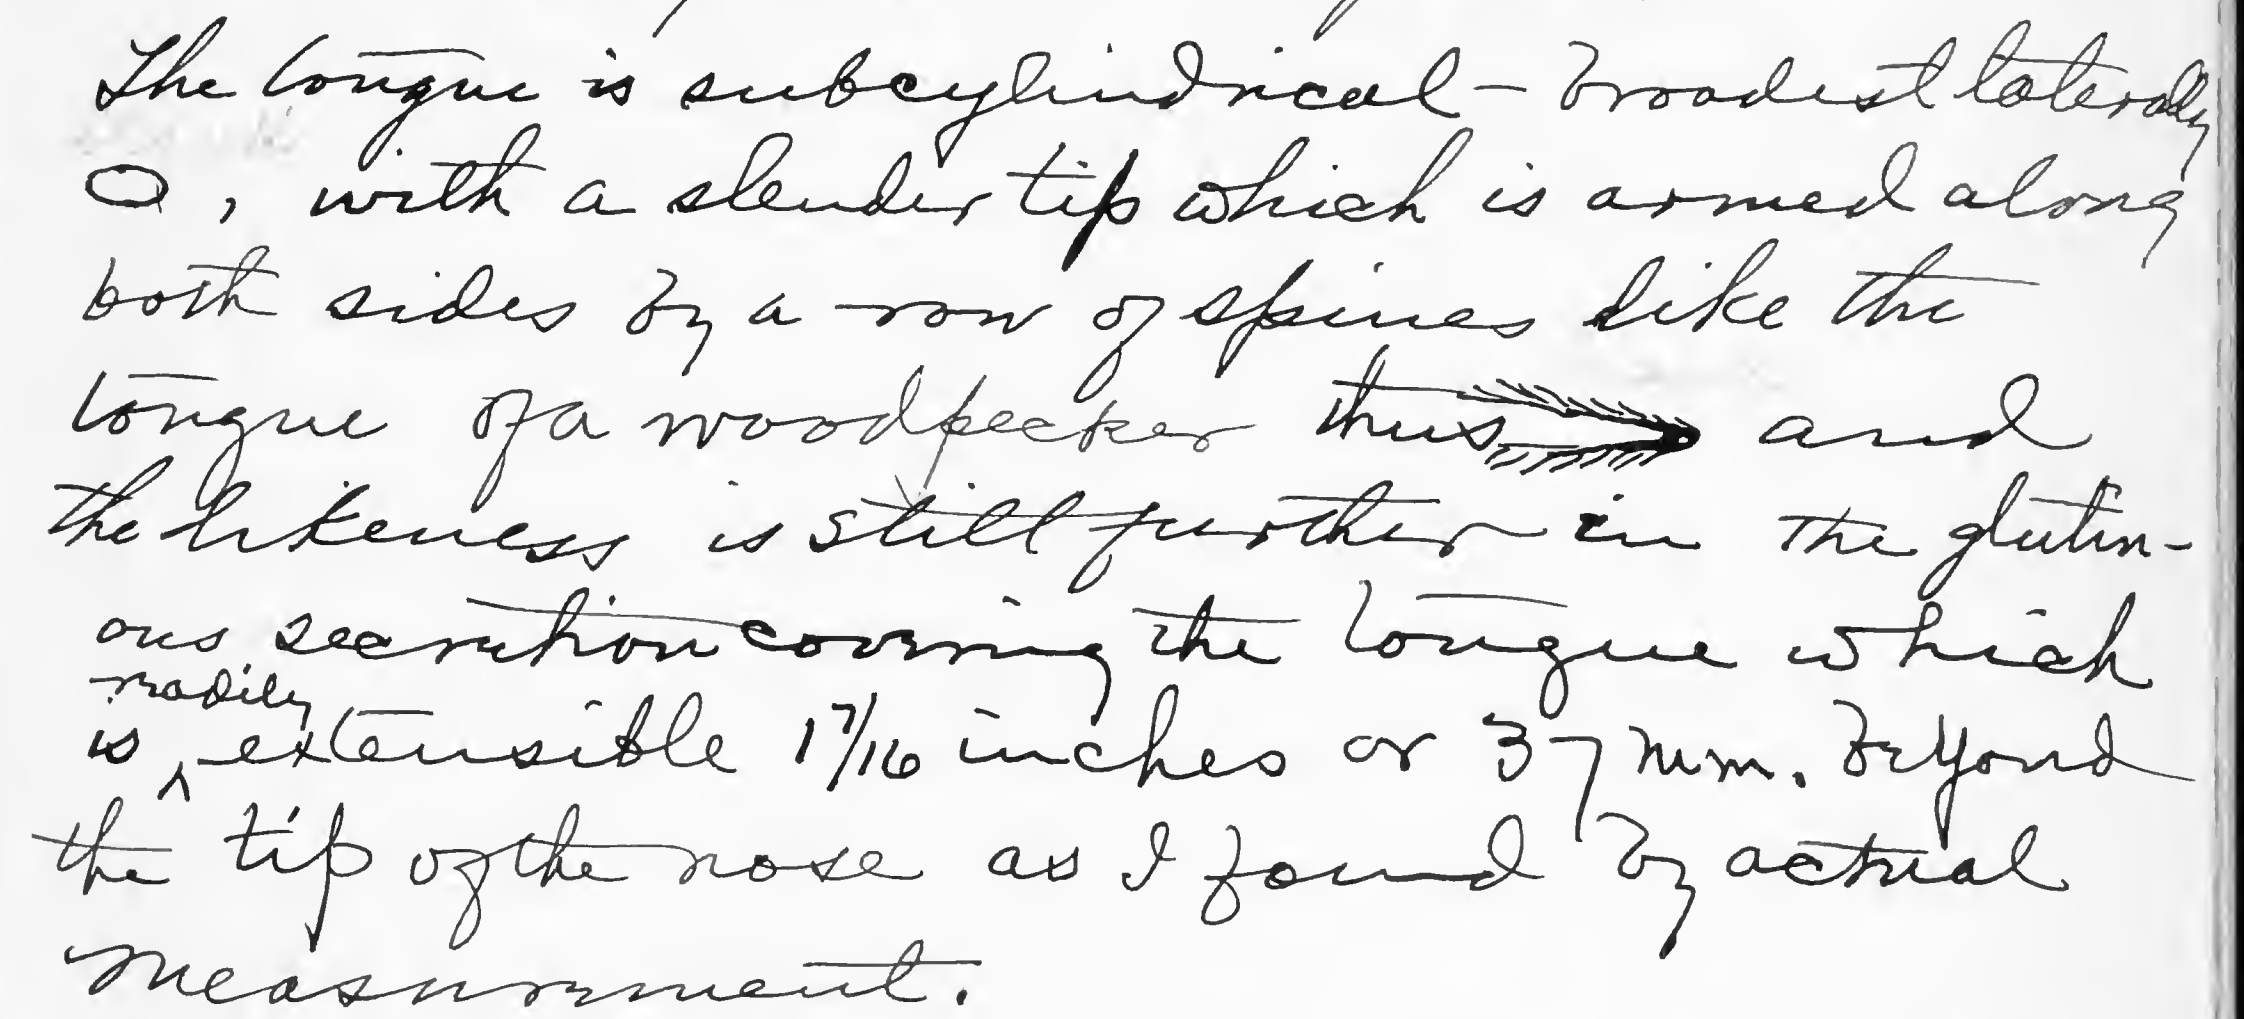 The tongue is subcylindrical - broadest laterally
, with a slender tip which is armed along
both sides by a row of spines like the
tongue of a woodpecker thus and
the likeness is still further in the glutin-
ous secretion covering the tongue which
readily
is ^ extensible 1 7/16 inches or 37 mm. beyond
the tip of the nose as I found by actual
measurement.